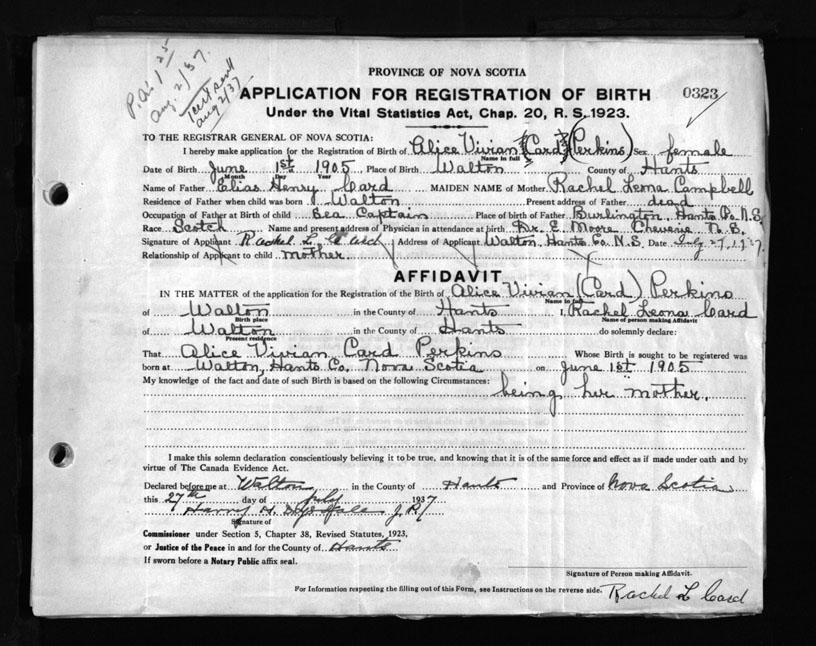 P.A. 1 25
Aug. 2/37.
1 cert sent
aug 2/37
PROVINCE OF NOVA SCOTIA
APPLICATION FOR REGISTRATION OF BIRTH 0323
Under the Vital Statistics Act, Chap. 20, R. S. 1923.
TO THE REGISTRAR GENERAL OF NOVA SCOTIA:
I hereby make application for the Registration of Birth of Alice Vivian (Card) (Perkins) Sex female
Name in full
Date of Birth June 1st 1905 Place of Birth Walton County of Hants
Month Day Year
Name of Father Elias Henry Card MAIDEN NAME of Mother Rachel Leona Campbell
Residence of Father when child was born Walton Present address of Father dead
Occupation of Father at Birth of child Sea Captain Place of birth of Father Burlington, Hants Co. N.S.
Race Scotch Name and present address of Physician in attendance at birth Dr. E. Moore Cheverie N.S.
Signature of Applicant Rachel L. Card Address of Applicant Walton, Hants Co. N.S. Date July 27, 1937.
Relationship of Applicant to child mother
AFFIDAVIT
IN THE MATTER of the application for the Registration of the Birth of Alice Vivian (Card) Perkins
Name in full
of Walton in the County of Hants I, Rachel Leona Card
Birth place Name of person making Affidavit
of Walton in the County of Hants do solemnly declare:
Present residence
That Alice Vivian Card Perkins Whose Birth is sought to be registered was
born at Walton, Hants Co. Nova Scotia on June 1st 1905
My knowledge of the fact and date of such Birth is based on the following Circumstances: being her mother.
I make this solemn declaration conscientiously believing it to be true, and knowing that it is of the same force and effect as if made under oath and by
virtue of The Canada Evidence Act.
Declared before me at Walton in the County of Hants and Province of Nova Scotia
this 27th day of July 1937
Harry H. J.P.
Signature of
Commissioner under Section 5, Chapter 38, Revised Statutes, 1923,
or Justice of the Peace in and for the County of Hants
If sworn before a Notary Public affix seal.
Signature of Person making Affidavit.
For Information respecting the filling out of this Form, see Instructions on the reverse side. Rachel L Card